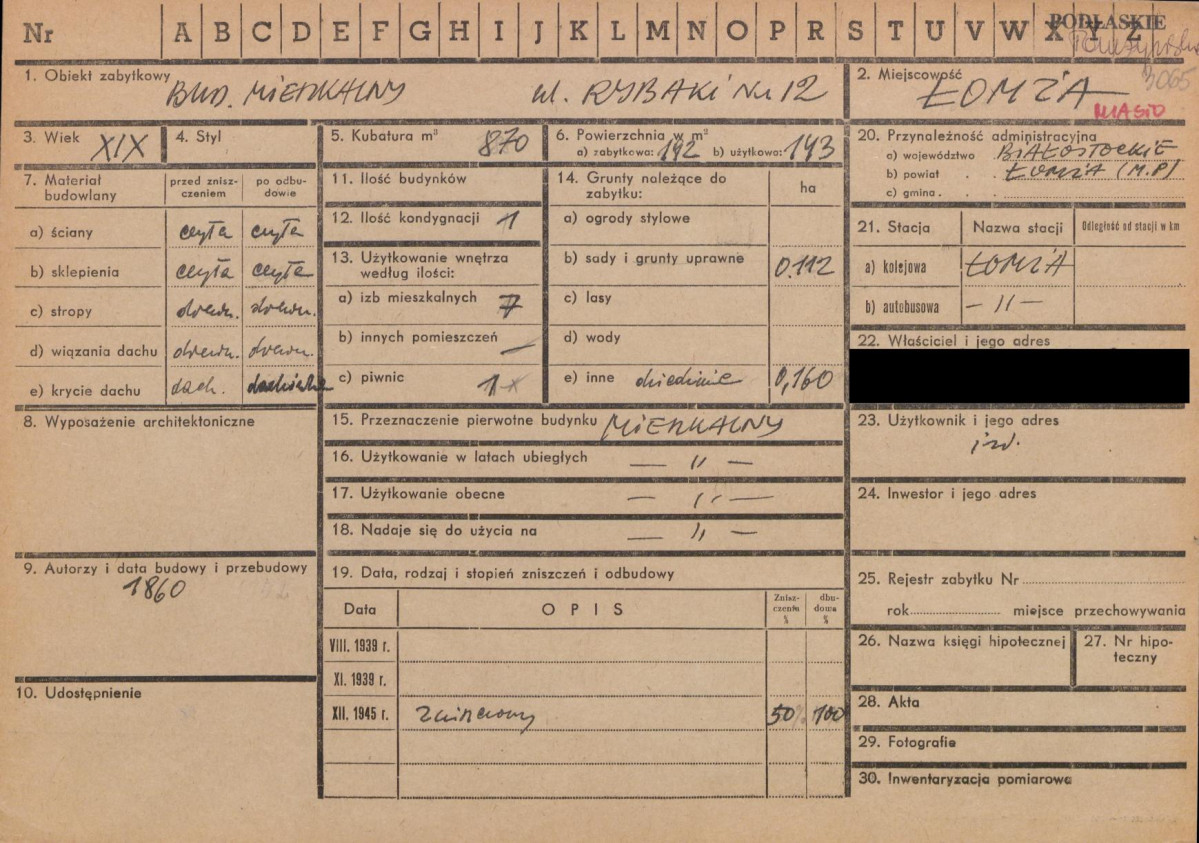 Nr A B C D E F G H I J K L M N O P R S T U V W X Y Z
PODLASKIE
3065
1. Obiekt zabytkowy BUD. MIESZKALNY ul. RYBAKI Nr 12
2. Miejscowość ŁOMŻA
MIASTO
3. Wiek XIX
4. Styl
5. Kubatura m³ 870
6. Powierzchnia w m²
a) zabytkowa: 192 b) użytkowa: 143
7. Materiał budowlany
przed zniszczeniem
po odbudowie
a) ściany cegła cegła
b) sklepienia cegła cegła
c) stropy drewn. drewn.
d) wiązania dachu drewn. drewn.
e) krycie dachu dach. dachówka
8. Wyposażenie architektoniczne
9. Autorzy i data budowy i przebudowy
1860
10. Udostępnienie
11. Ilość budynków
12. Ilość kondygnacji 1
13. Użytkowanie wnętrza
według ilości:
a) izb mieszkalnych 7
b) innych pomieszczeń —
c) piwnic 1
14. Grunty należące do
zabytku:
ha
a) ogrody stylowe
b) sady i grunty uprawne 0.112
c) lasy
d) wody
e) inne dziedzinie 0,160
15. Przeznaczenie pierwotne budynku MIESZKALNY
16. Użytkowanie w latach ubiegłych — " —
17. Użytkowanie obecne — " —
18. Nadaje się do użycia na — " —
19. Data, rodzaj i stopień zniszczeń i odbudowy
Data OPIS Zniszczenia % dbudowa %
VIII. 1939 r.
XI. 1939 r.
XII. 1945 r. Zniszczony 50% 100
20. Przynależność administracyjna
a) województwo BIAŁOSTOCKIE
b) powiat . . ŁOMŻA (M.P)
c) gmina . .
21. Stacja Nazwa stacji Odległość od stacji w km
a) kolejowa ŁOMŻA
b) autobusowa — " —
22. Właściciel i jego adres
23. Użytkownik i jego adres
j.w.
24. Inwestor i jego adres
25. Rejestr zabytku Nr
rok miejsce przechowywania
26. Nazwa księgi hipotecznej
27. Nr hipoteczny
28. Akta
29. Fotografie
30. Inwentaryzacja pomiarowa